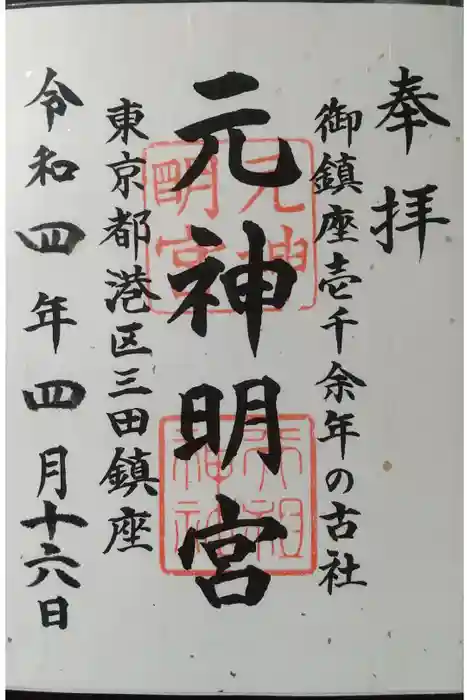 奉拝
御鎮座壱千余年の古社
元神明宮
東京都港区三田鎮座
令和四年四月十六日
元神明宮